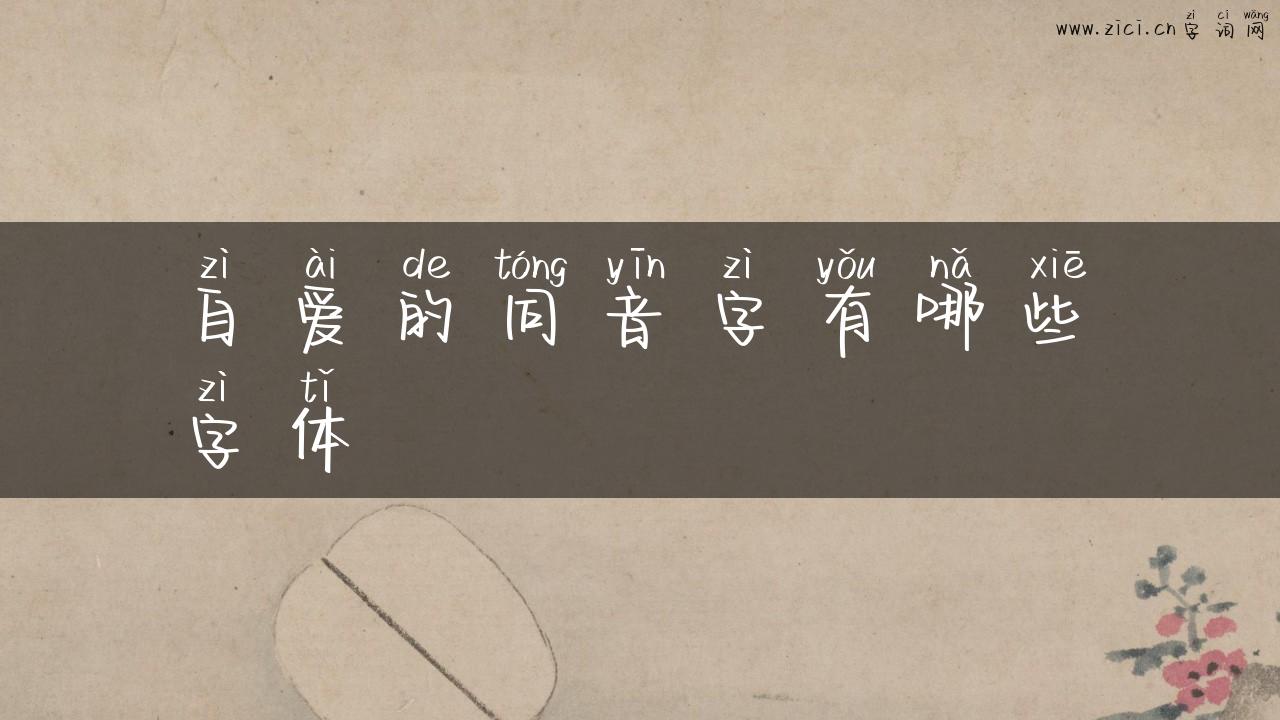 zì cí wǎng
www.zici.cn字词网
zì ài de tóng yīn zì yǒu nǎ xiē
自爱的同音字有哪些
zì tǐ
字体